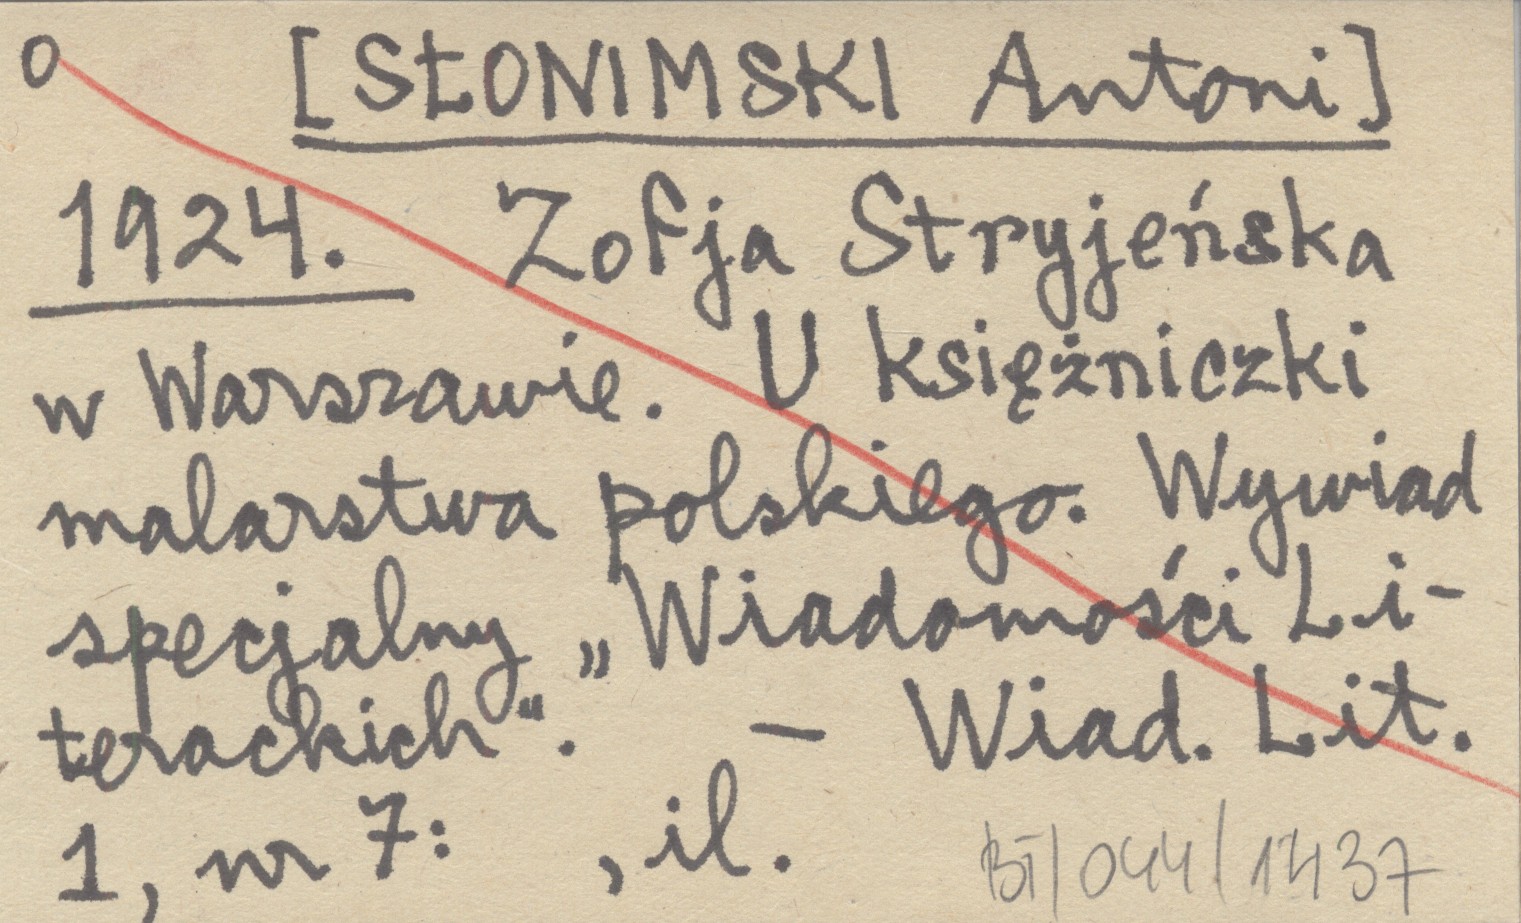 o [SŁONIMSKI Antoni]
1924. Zofja Stryjeńska
w Warszawie. U księżniczki
malarstwa polskiego. Wywiad
specjalny „Wiadomości Li-
terackich“. — Wiad. Lit.
1, nr 7: , il.
BT/044/1437